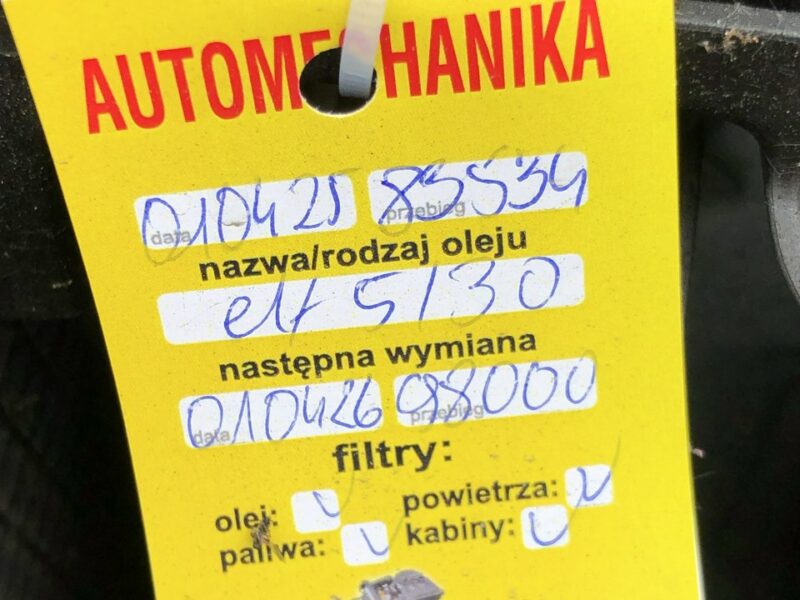 AUTOMECHANIKA
010425 83534
data przebieg
nazwa/rodzaj oleju
elf 5/30
następna wymiana
010426 98000
data przebieg
filtry:
olej: v powietrza: v
paliwa: v kabiny: v